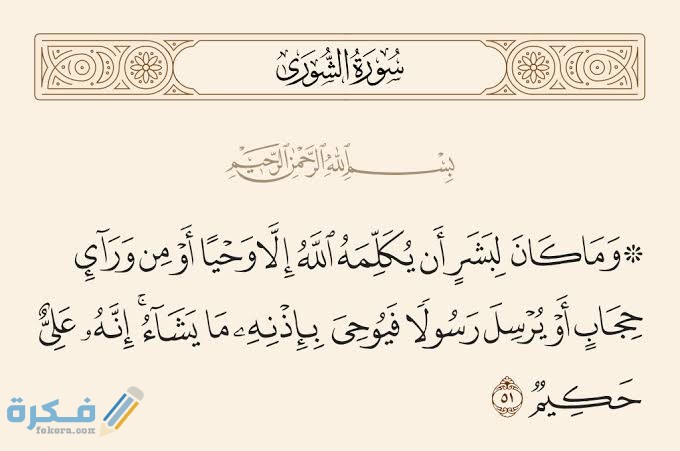 سُورَةُ الشُّورَىٰ
بِسْمِ ٱللَّهِ ٱلرَّحْمَٰنِ ٱلرَّحِيمِ
۞ وَمَا كَانَ لِبَشَرٍ أَن يُكَلِّمَهُ ٱللَّهُ إِلَّا وَحْيًا أَوْ مِن وَرَآئِ
حِجَابٍ أَوْ يُرْسِلَ رَسُولًا فَيُوحِىَ بِإِذْنِهِۦ مَا يَشَآءُ ۚ إِنَّهُۥ عَلِىٌّ
حَكِيمٌ ٥١
فكرة
fekera.com